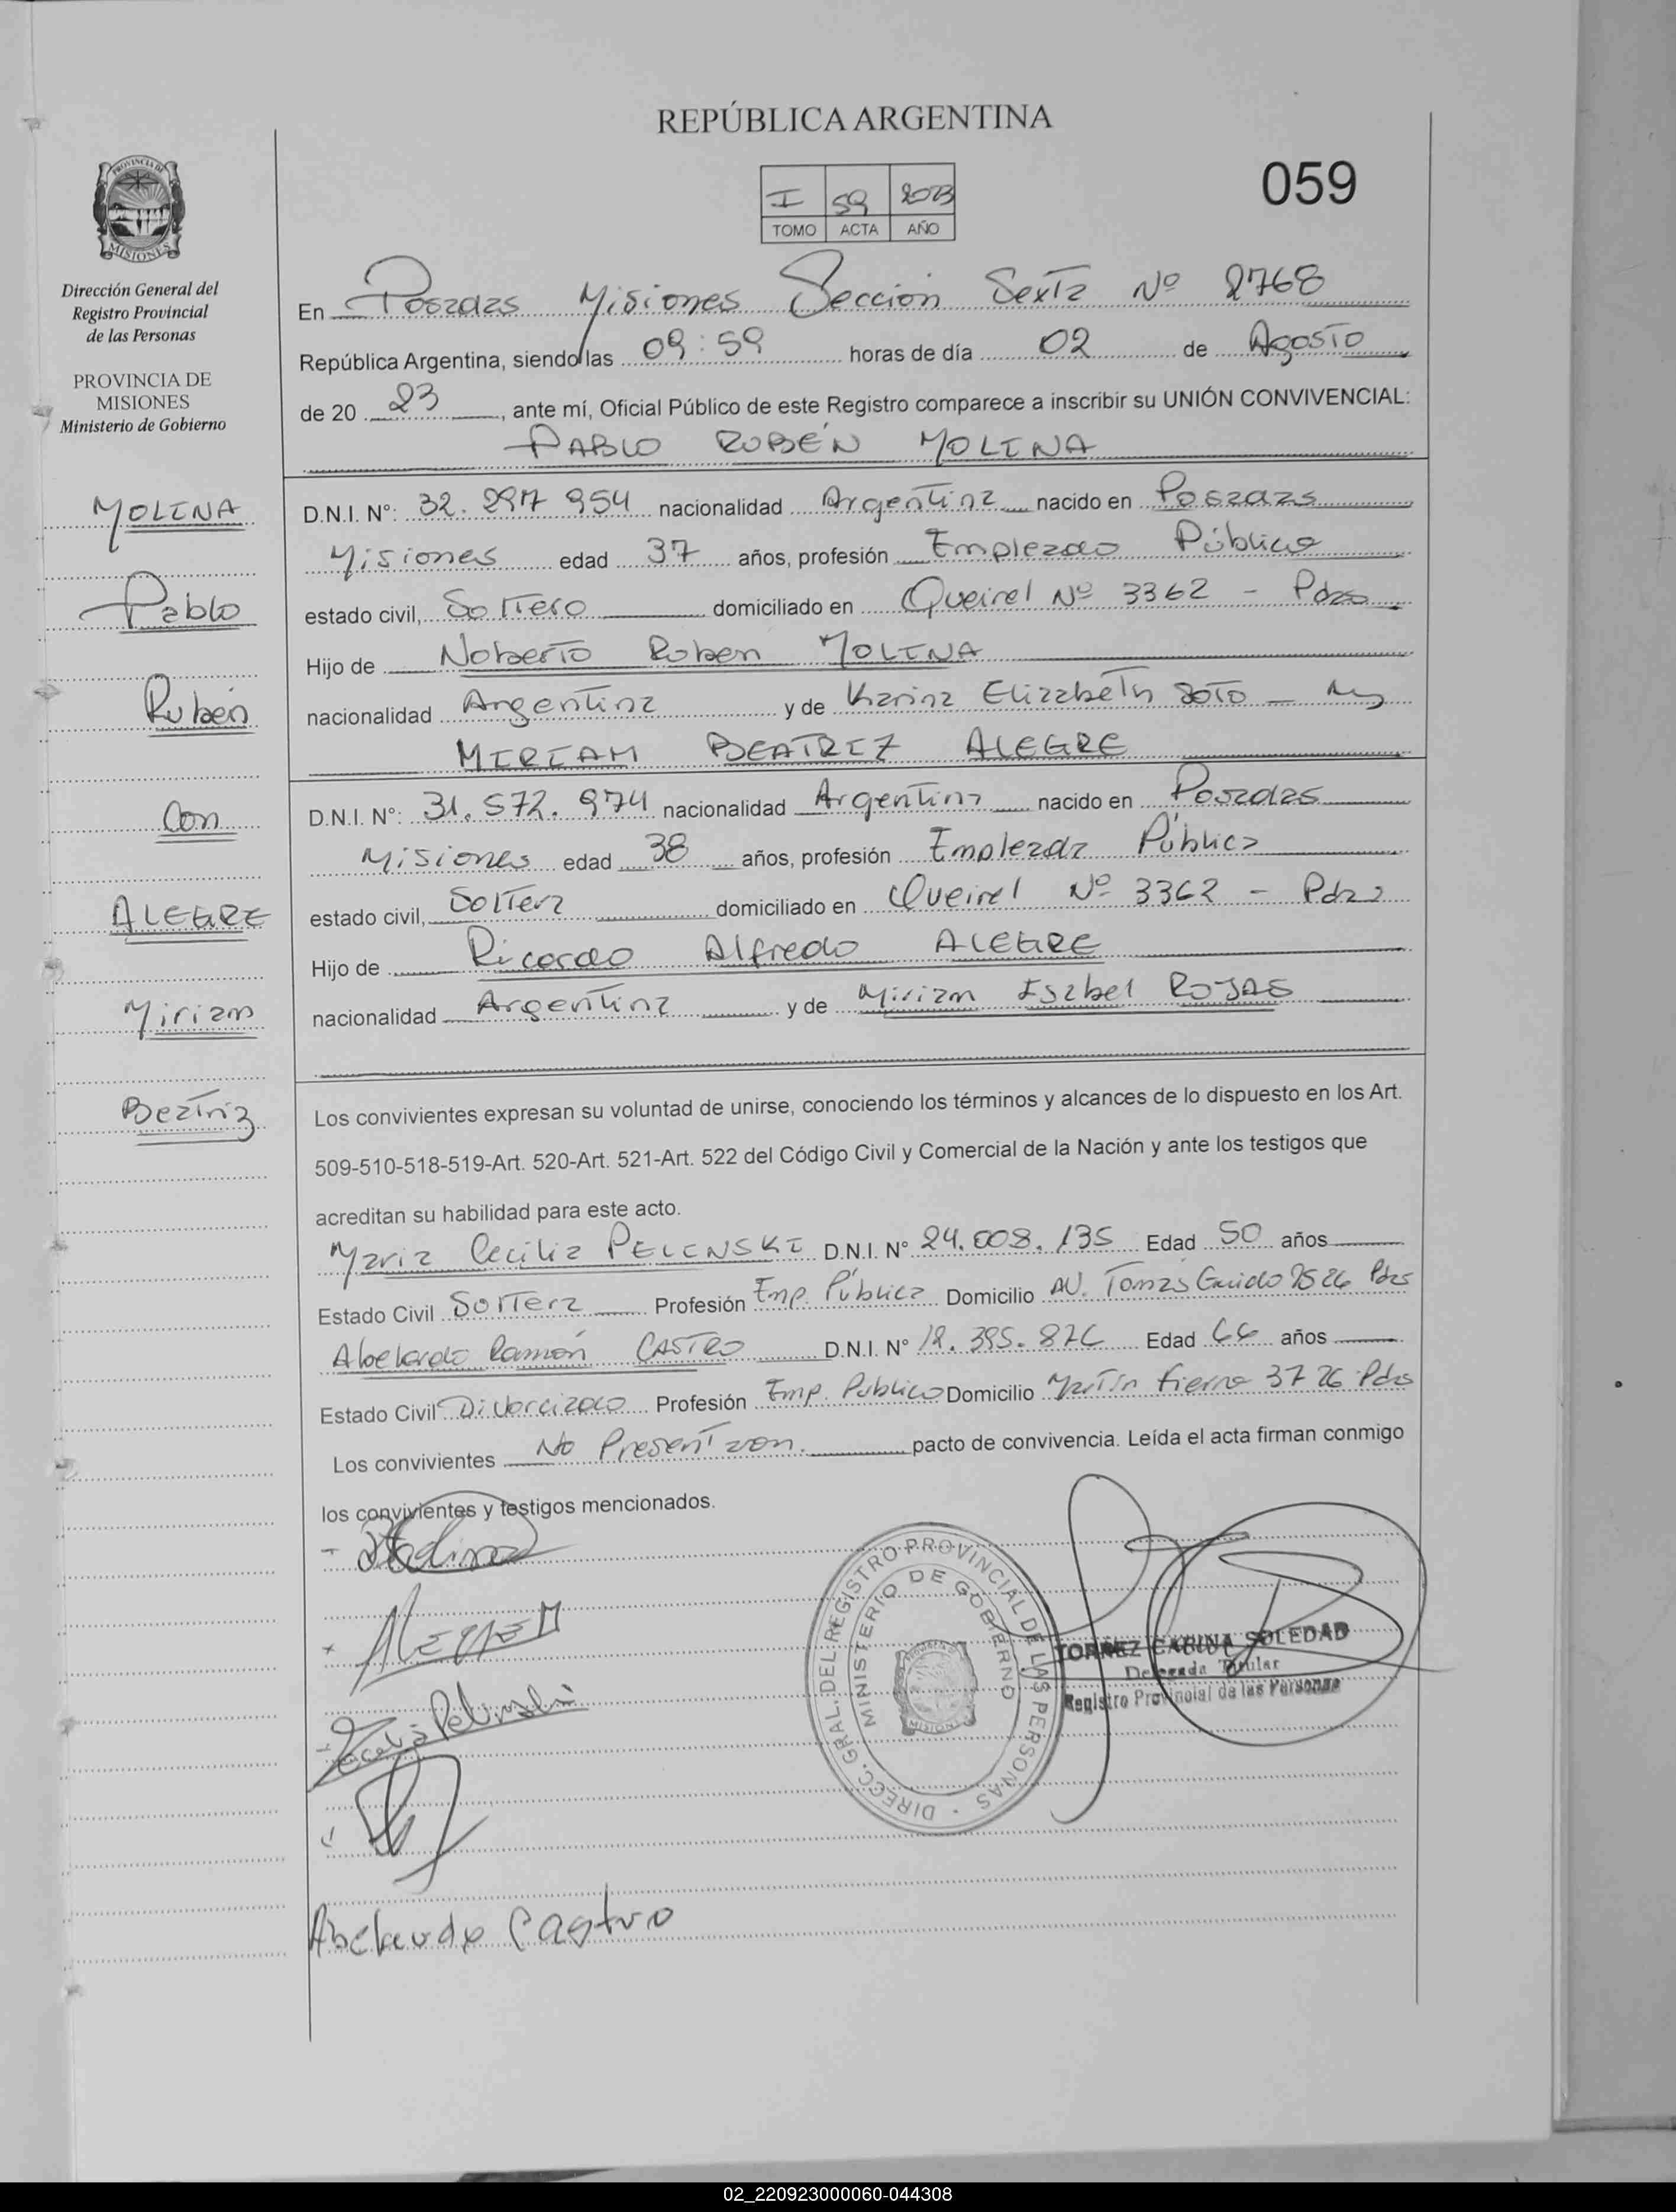 REPÚBLICA ARGENTINA
059
I 59 2023
TOMO ACTA AÑO
PROVINCIA DE
MISIONES
Dirección General del
Registro Provincial
de las Personas
PROVINCIA DE
MISIONES
Ministerio de Gobierno
MOLINA
Pablo
Rubén
Con
ALEGRE
Miriam
Beatriz
En Posadas Misiones Sección Sexta Nº 2768
República Argentina, siendo las 09:59 horas de día 02 de Agosto
de 20 23, ante mí, Oficial Público de este Registro comparece a inscribir su UNIÓN CONVIVENCIAL:
PABLO RUBÉN MOLINA
D.N.I. Nº: 32.297 954 nacionalidad Argentina nacido en Posadas
Misiones edad 37 años, profesión Empleado Público
estado civil, Soltero domiciliado en Queirel Nº 3362 - Pdas
Hijo de Noberto Ruben MOLINA
nacionalidad Argentina y de Karina Elizabeth SOTO
MIRIAM BEATRIZ ALEGRE
D.N.I. Nº: 31.572.974 nacionalidad Argentina nacido en Posadas
Misiones edad 38 años, profesión Empleada Pública
estado civil, Soltera domiciliado en Queirel Nº 3362 - Pdas
Hijo de Ricardo Alfredo ALEGRE
nacionalidad Argentina y de Miriam Isabel ROJAS
Los convivientes expresan su voluntad de unirse, conociendo los términos y alcances de lo dispuesto en los Art.
509-510-518-519-Art. 520-Art. 521-Art. 522 del Código Civil y Comercial de la Nación y ante los testigos que
acreditan su habilidad para este acto.
Maria Cecilia PELENSKI D.N.I. Nº 24.008.135 Edad 50 años
Estado Civil Soltera Profesión Emp. Pública Domicilio AV. Tomás Guido 2526 Pdas
Abelardo Ramón CASTRO D.N.I. Nº 12.395.876 Edad 66 años
Estado Civil Divorciado Profesión Emp. Publico Domicilio Martín Fierro 3726 Pdas
Los convivientes No Presentaron. pacto de convivencia. Leída el acta firman conmigo
los convivientes y testigos mencionados.
DIRECC. GRAL. DEL REGISTRO PROVINCIAL DE LAS PERSONAS
MINISTERIO DE GOBIERNO
MISIONES
TORREZ CARINA SOLEDAD
Delegada Titular
Registro Provincial de las Personas
Abelardo Castro
02_220923000060-044308